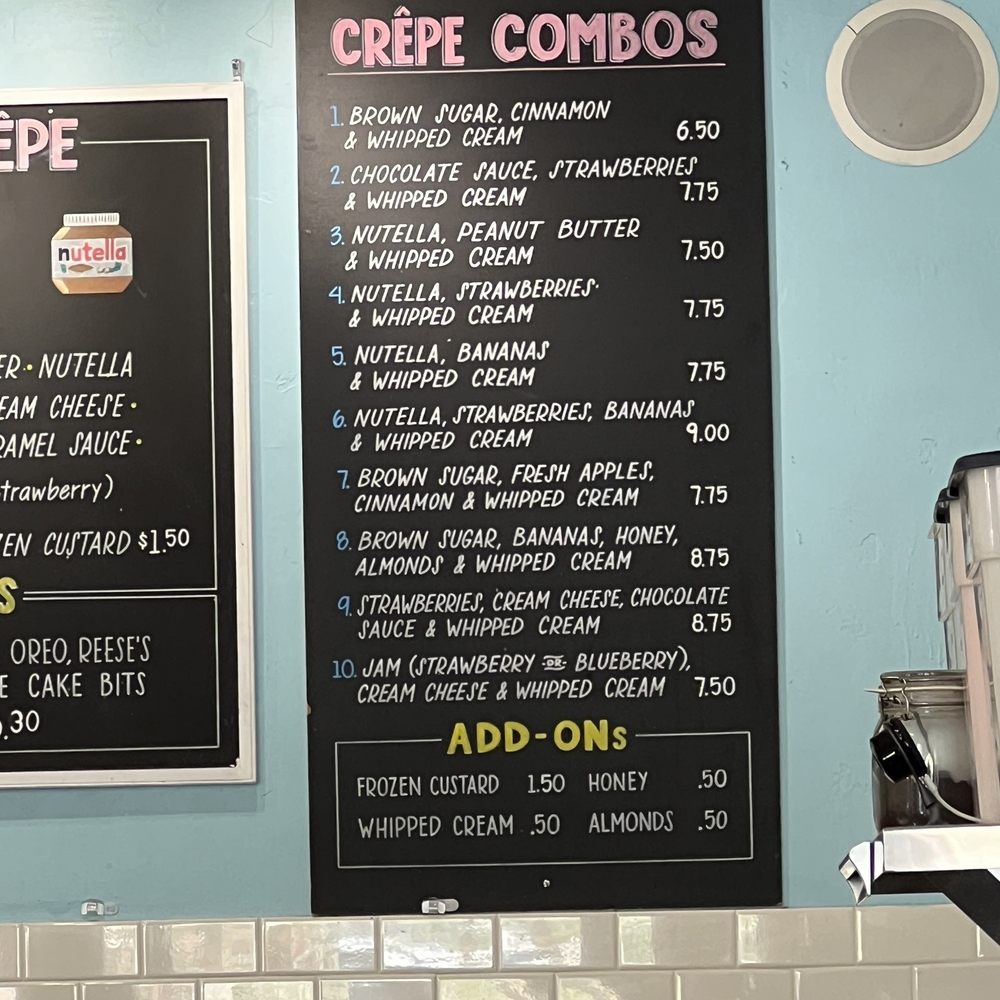 nutella
NUTELLA
CHEESE·
SAUCE·
CUSTARD $1.50
OREO, REESE'S
CAKE BITS
CRÊPE COMBOS
1. BROWN SUGAR, CINNAMON
& WHIPPED CREAM 6.50
2. CHOCOLATE SAUCE, STRAWBERRIES
& WHIPPED CREAM 7.75
3. NUTELLA, PEANUT BUTTER
& WHIPPED CREAM 7.50
4. NUTELLA, STRAWBERRIES
& WHIPPED CREAM 7.75
5. NUTELLA, BANANAS
& WHIPPED CREAM 7.75
6. NUTELLA, STRAWBERRIES, BANANAS
& WHIPPED CREAM 9.00
7. BROWN SUGAR, FRESH APPLES,
CINNAMON & WHIPPED CREAM 7.75
8. BROWN SUGAR, BANANAS, HONEY,
ALMONDS & WHIPPED CREAM 8.75
9. STRAWBERRIES, CREAM CHEESE, CHOCOLATE
SAUCE & WHIPPED CREAM 8.75
10. JAM (STRAWBERRY OR BLUEBERRY),
CREAM CHEESE & WHIPPED CREAM 7.50
ADD-ONs
FROZEN CUSTARD 1.50 HONEY .50
WHIPPED CREAM .50 ALMONDS .50